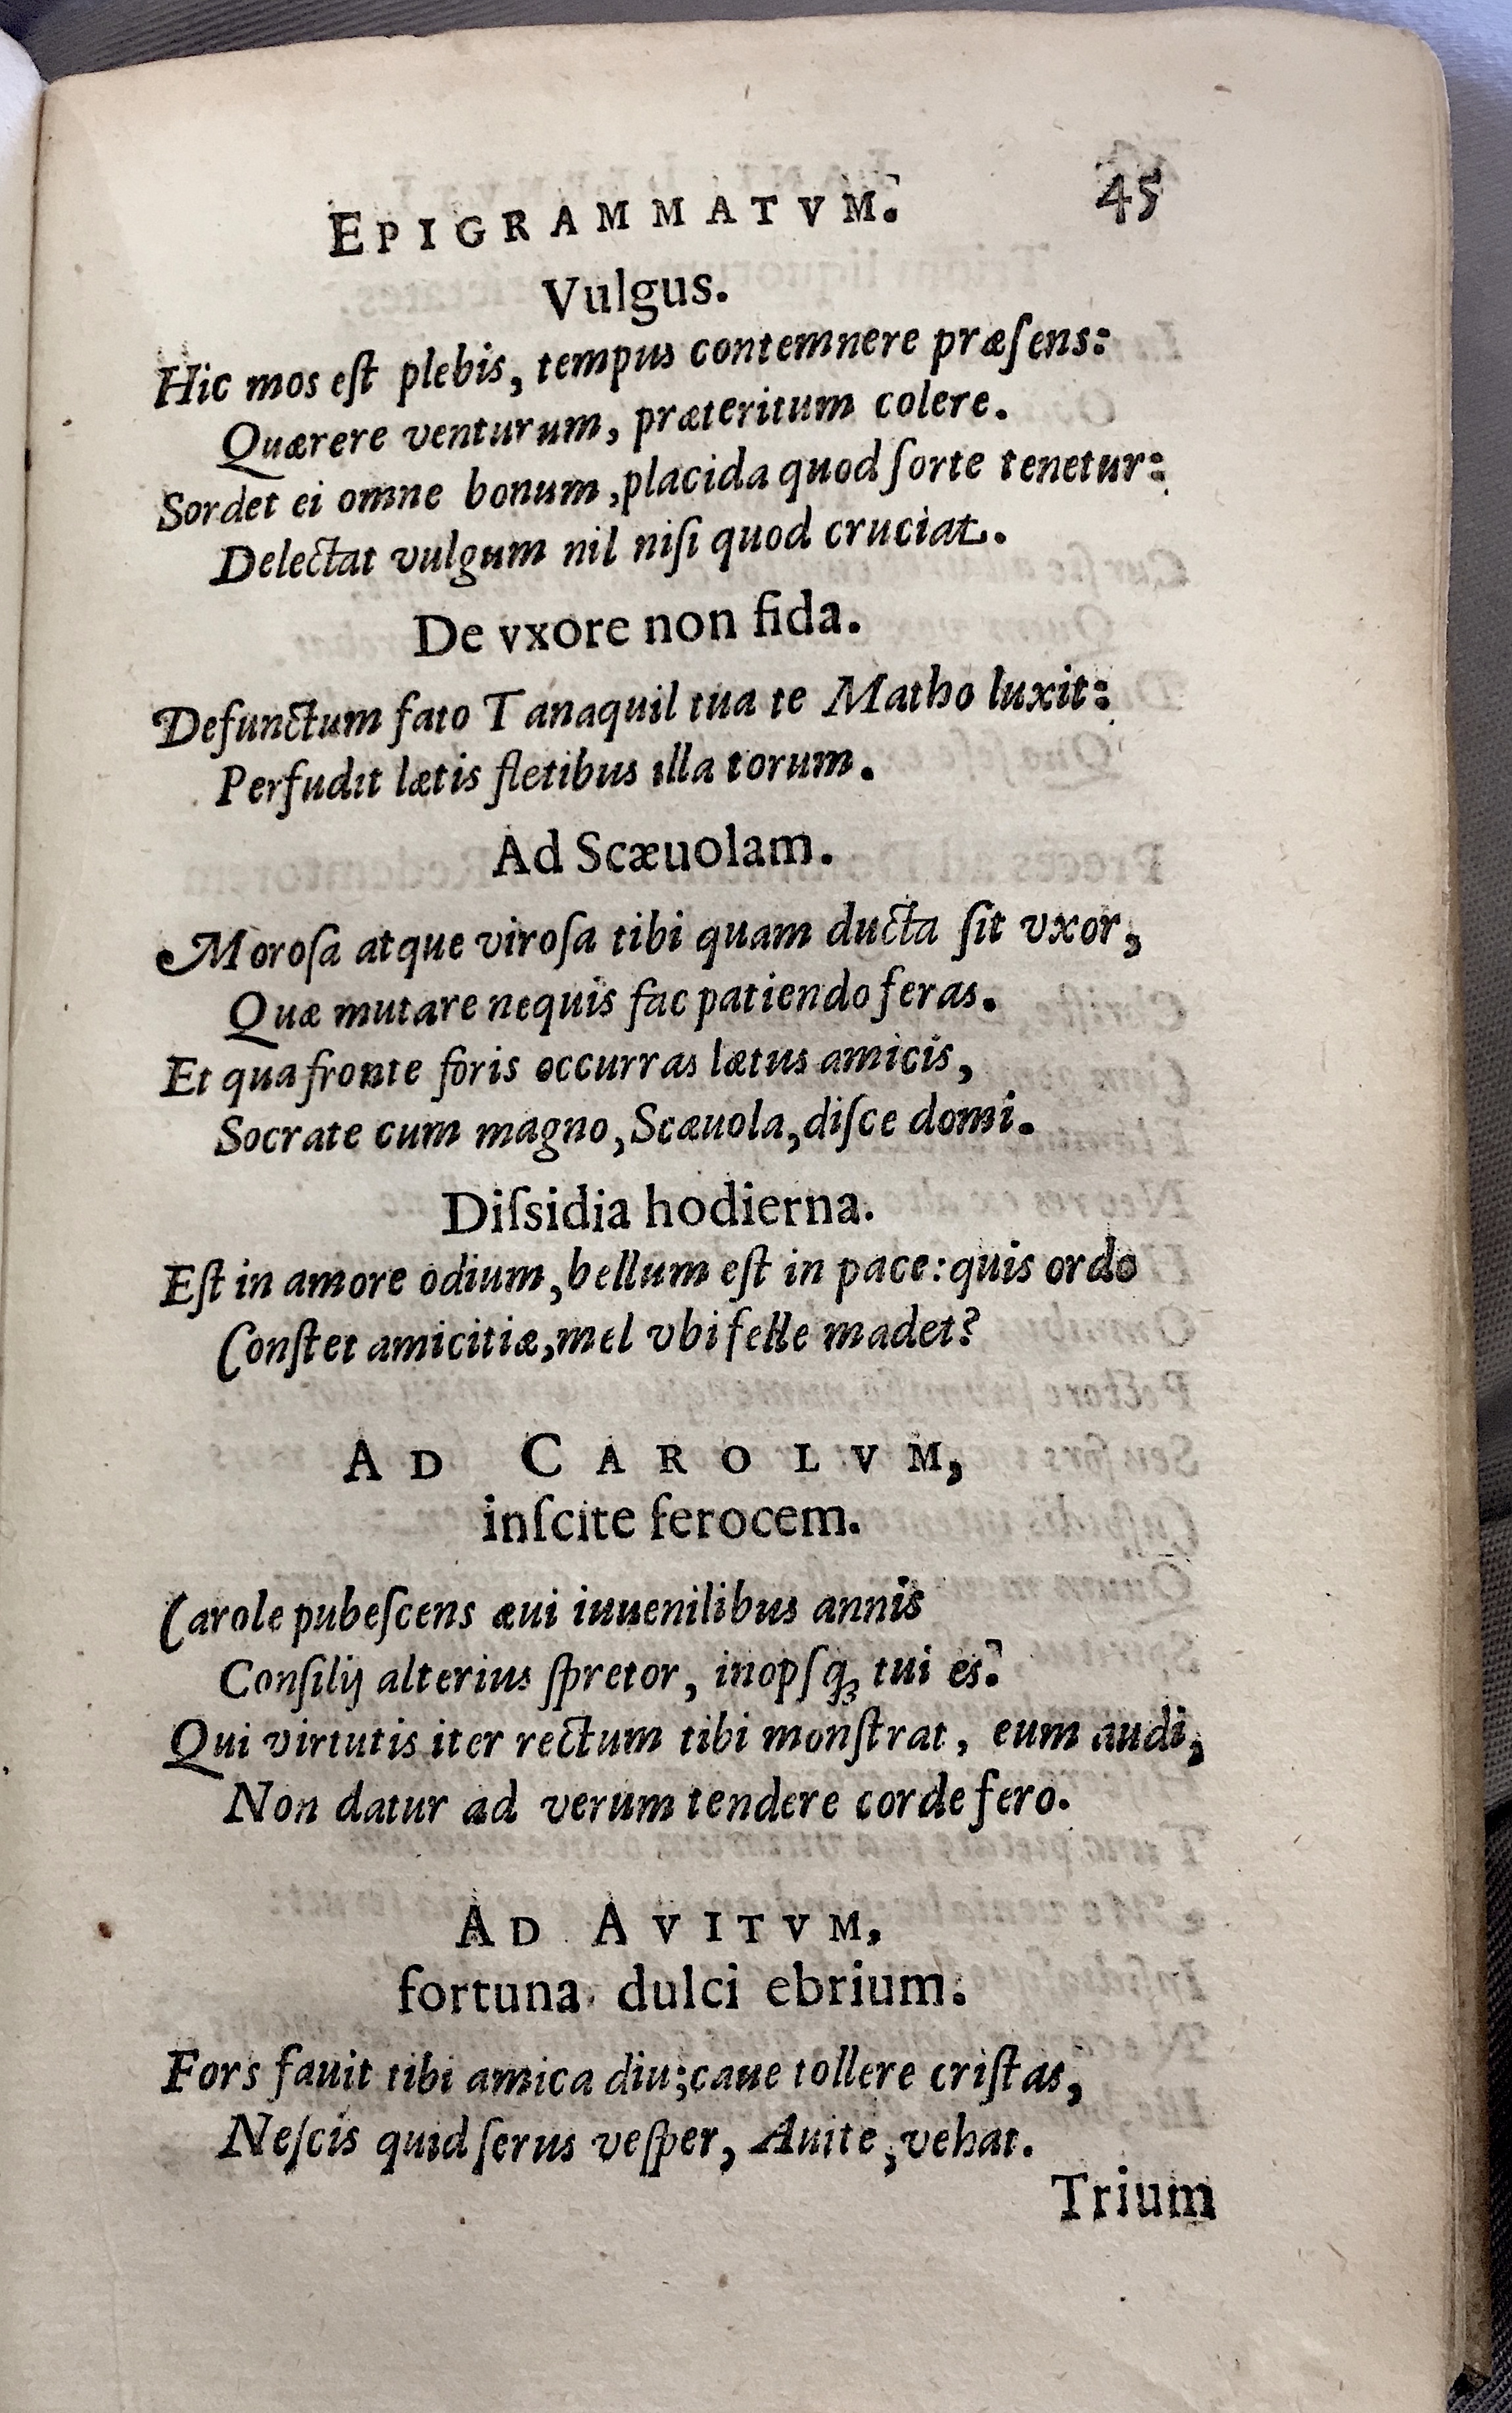 EPIGRAMMATVM. 45
Vulgus.
Hic mos eſt plebis, tempus contemnere præſens:
Quærere venturum, præteritum colere.
Sordet ei omne bonum, placida quod ſorte tenetur:
Delectat vulgum nil niſi quod cruciat.
De vxore non fida.
Defunctum fato Tanaquil tua te Matho luxit:
Perfudit lætis fletibus illa torum.
Ad Scæuolam.
Moroſa atque viroſa tibi quam ducta ſit vxor,
Quæ mutare nequis fac patiendo feras.
Et qua fronte foris occurras lætus amicis,
Socrate cum magno, Scæuola, diſce domi.
Diſsidia hodierna.
Eſt in amore odium, bellum eſt in pace: quis ordo
Conſtet amicitiæ, mel vbi felle madet?
AD CAROLVM,
inſcite ferocem.
Carole pubeſcens æui iuuenilibus annis
Conſilij alterius ſpretor, inopſq; tui es.
Qui virtutis iter rectum tibi monſtrat, eum audi,
Non datur ad verum tendere corde fero.
AD AVITVM,
fortuna dulci ebrium.
Fors fauit tibi amica diu; caue tollere criſtas,
Neſcis quid ſerus veſper, Auite, vehat.
Trium